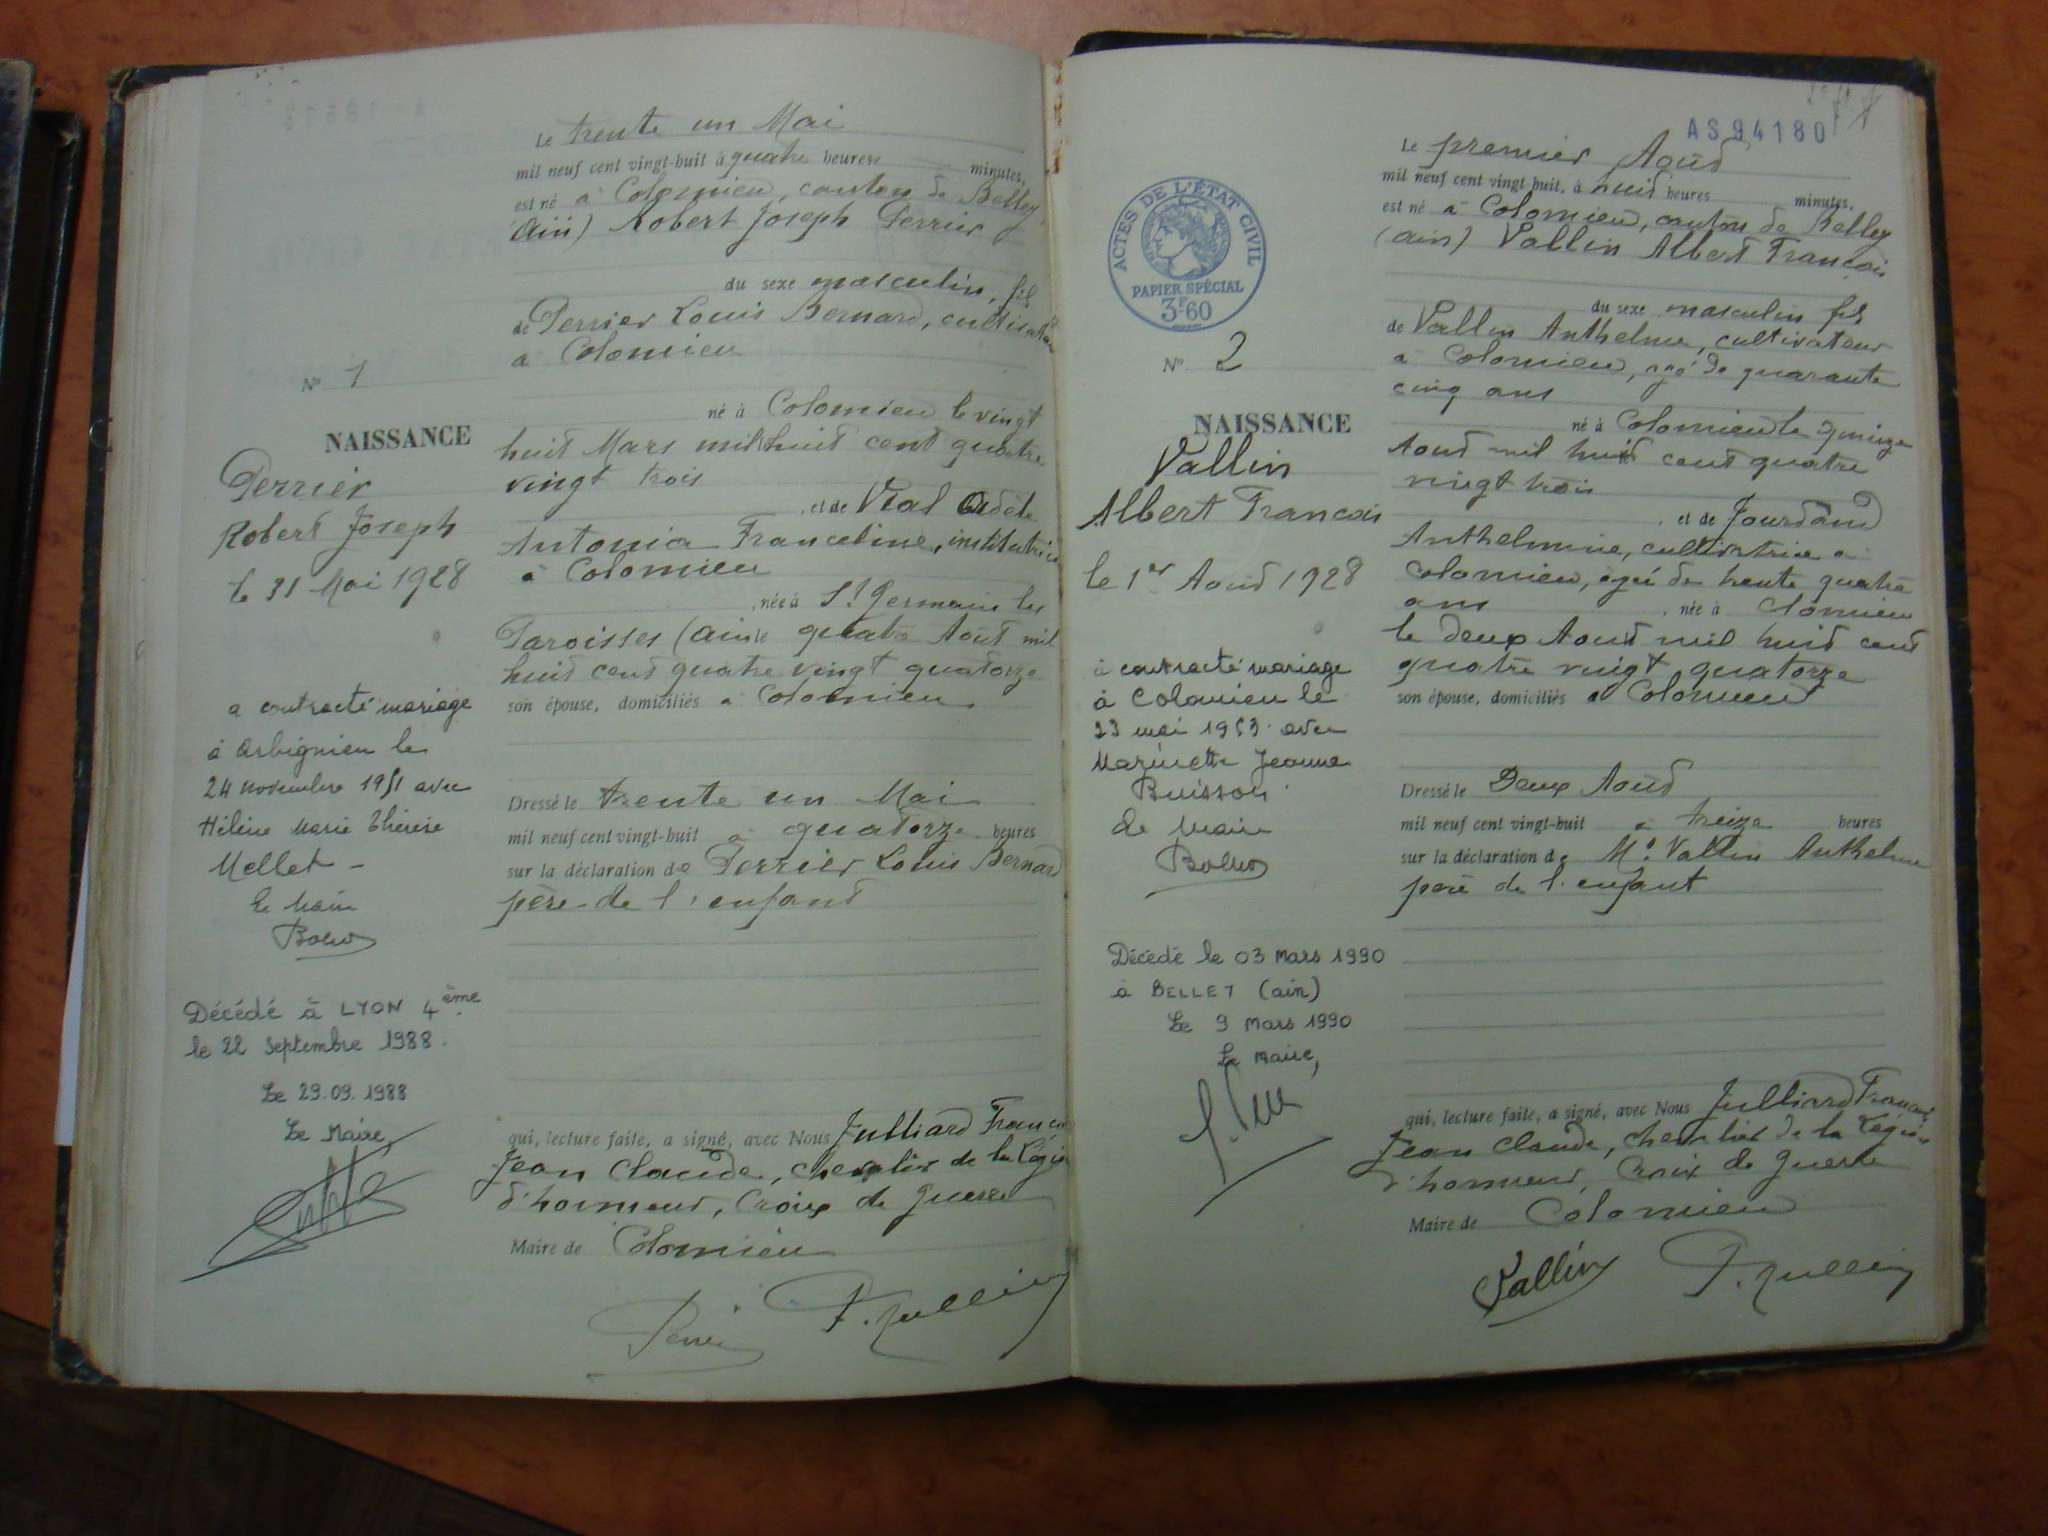 Le trente un Mai
mil neuf cent vingt-huit à quatre heures minutes,
est né à Colomieu, canton de Belley
(Ain) Robert Joseph Perrier
du sexe masculin, fils
de Perrier Louis Bernard, cultivateur
à Colomieu
N° 1
né à Colomieu le vingt
NAISSANCE
huit Mars mil huit cent quatre
vingt trois
Perrier
Robert Joseph
le 31 Mai 1928
, et de Vial Adèle
Antonia Franceline, institutrice
à Colomieu
, née à St Germain les
Paroisses (Ain) le quatre Août mil
huit cent quatre vingt quatorze
son épouse, domiciliés à Colomieu
a contracté mariage
à Arbignieu le
24 novembre 1951 avec
Hélène Marie Thérèse
Mellet -
Le Maire
Dressé le trente un Mai
mil neuf cent vingt-huit à quatorze heures
sur la déclaration de Perrier Louis Bernard
père de l'enfant
Décédé à LYON 4ème
le 22 Septembre 1988.
Le 29.09.1988
Le Maire,
qui, lecture faite, a signé, avec Nous Julliard Franço
Jean Claude, chevalier de la Légion
d'honneur, Croix de guerre
Maire de Colomieu
AS 94180
Le premier Août
mil neuf cent vingt-huit, à huit heures minutes,
est né à Colomieu, canton de Belley
(Ain) Vallin Albert François
ACTES DE L'ÉTAT CIVIL
PAPIER SPÉCIAL
3F60
du sexe masculin fils
de Vallin Anthelme, cultivateur
à Colomieu, âgé de quarante
cinq ans
N° 2
né à Colomieu le quinze
NAISSANCE
Août mil huit cent quatre
vingt trois
Vallin
Albert François
le 1er Août 1928
, et de Jourdand
Anthelmine, cultivatrice à
Colomieu, âgée de trente quatre
ans , née à Colomieu
le deux Août mil huit cent
quatre vingt quatorze
son épouse, domiciliés à Colomieu
a contracté mariage
à Colomieu le
23 mai 1953 avec
Marinette Jeanne
Buisson
Le Maire
Dressé le Deux Août
mil neuf cent vingt-huit à treize heures
sur la déclaration de Mr Vallin Anthelme
père de l'enfant
Décédé le 03 Mars 1990
à BELLEY (ain)
Le 9 Mars 1990
Le Maire,
qui, lecture faite, a signé, avec Nous Julliard François
Jean Claude, chevalier de la Légion
d'honneur, Croix de guerre
Maire de Colomieu
Vallin